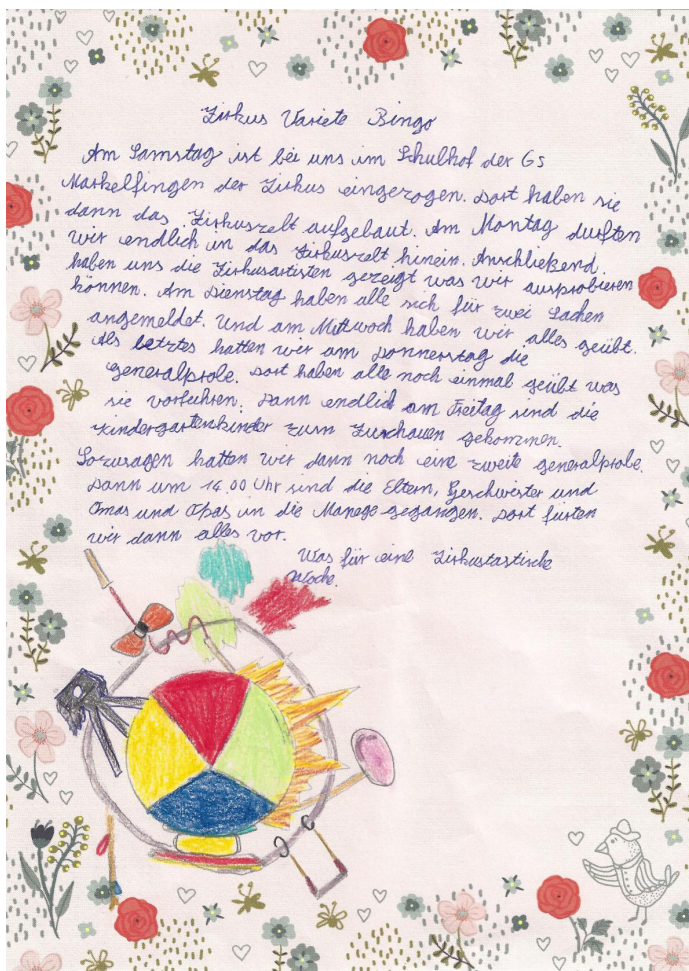 Zirkus Variete Bingo
Am Samstag ist bei uns im Schulhof der GS
Markelfingen der Zirkus eingezogen. Dort haben sie
dann das Zirkuszelt aufgebaut. Am Montag durften
wir endlich in das Zirkuszelt hinein. Anschließend
haben uns die Zirkusartisten gezeigt was wir ausprobieren
können. Am Dienstag haben alle sich für zwei Sachen
angemeldet. Und am Mittwoch haben wir alles geübt.
Als letztes hatten wir am Donnerstag die
Generalprobe. Dort haben alle noch einmal geübt was
sie vorführen. Dann endlich am Freitag sind die
Kindergartenkinder zum Zuschauen gekommen.
Sozusagen hatten wir dann noch eine zweite Generalprobe.
Dann um 14.00 Uhr sind die Eltern, Geschwister und
Omas und Opas in die Manege gegangen. Dort fürten
wir dann alles vor.
Was für eine Zirkustastische
Woche.